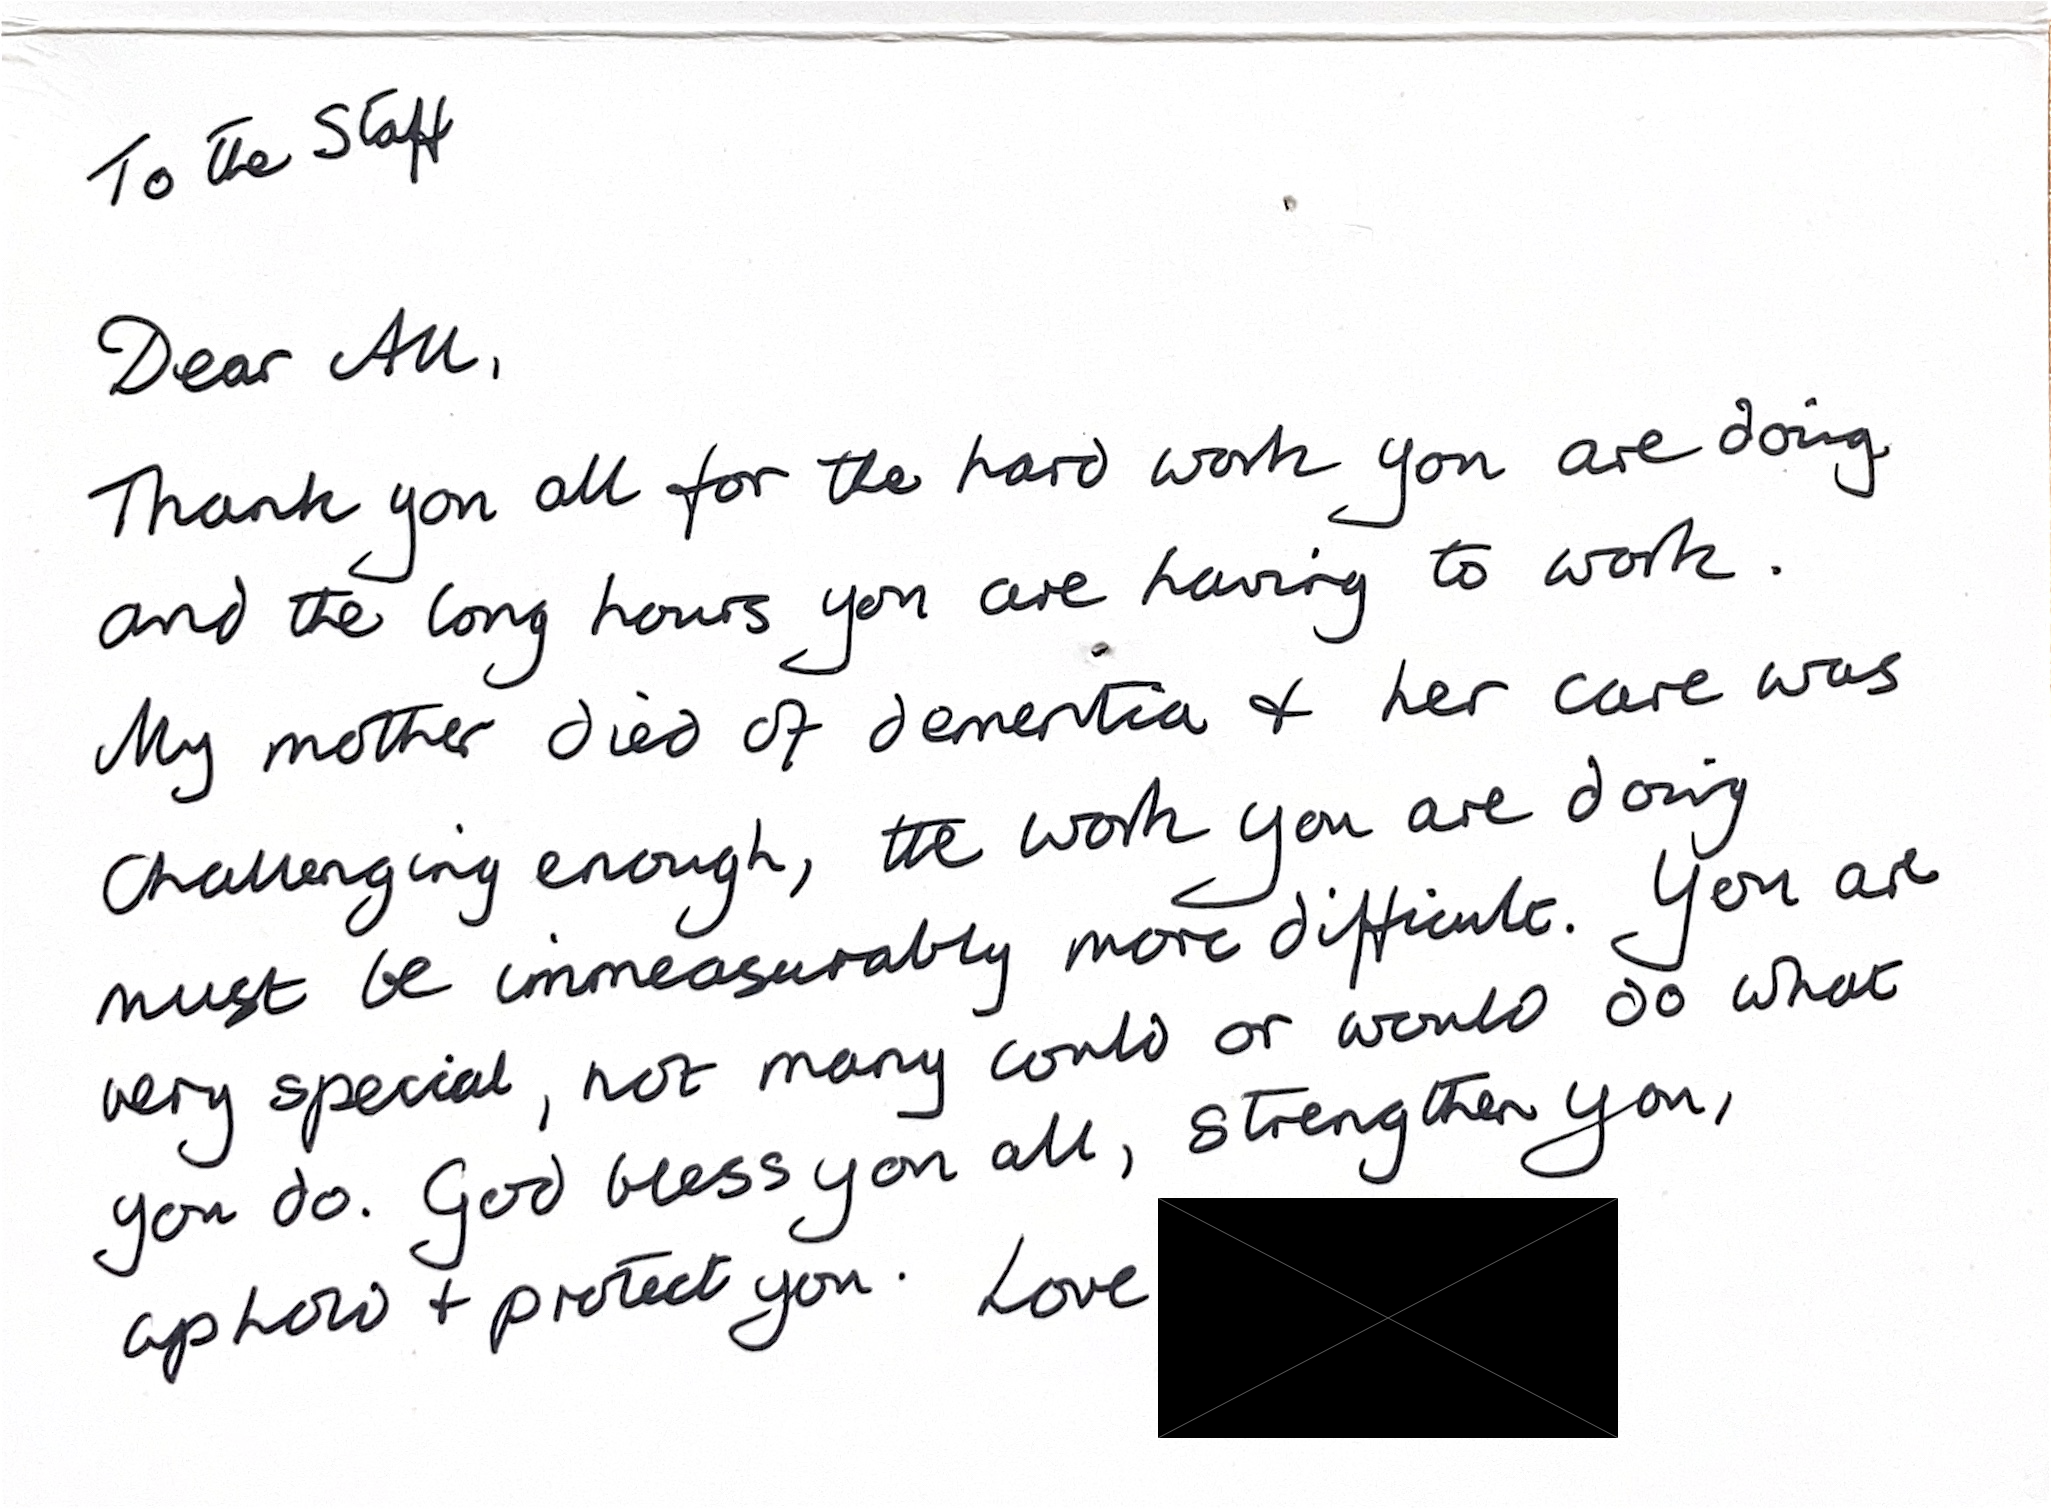 To the Staff
Dear All,
Thank you all for the hard work you are doing
and the long hours you are having to work.
My mother died of dementia & her care was
challenging enough, the work you are doing
must be immeasurably more difficult. You are
very special, not many could or would do what
you do. God bless you all, strengthen you,
uphold + protect you. Love